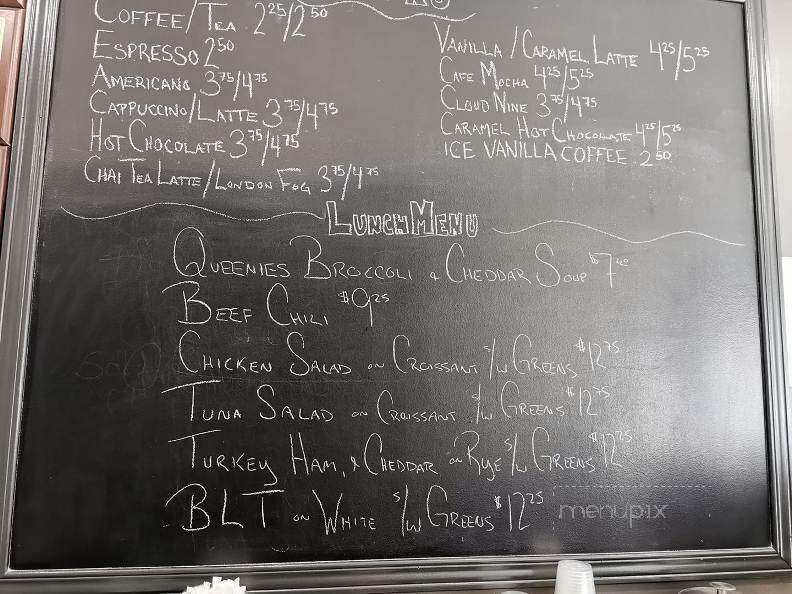 Coffee/Tea 2.25/2.50
Espresso 2.50
Americano 3.75/4.75
Cappuccino/Latte 3.75/4.75
Hot Chocolate 3.75/4.75
Chai Tea Latte/London Fog 3.75/4.75
Vanilla/Caramel Latte 4.25/5.25
Cafe Mocha 4.25/5.25
Cloud Nine 3.75/4.75
Caramel Hot Chocolate 4.25/5.25
ICE VANILLA COFFEE 2.50
Lunch Menu
Queenies Broccoli & Cheddar Soup $7
Beef Chili $9.25
Chicken Salad on Croissant s/w Greens $12.75
Tuna Salad on Croissant s/w Greens $12.75
Turkey Ham, & Cheddar on Rye s/w Greens $12.25
BLT on White s/w Greens $12.25
menupix